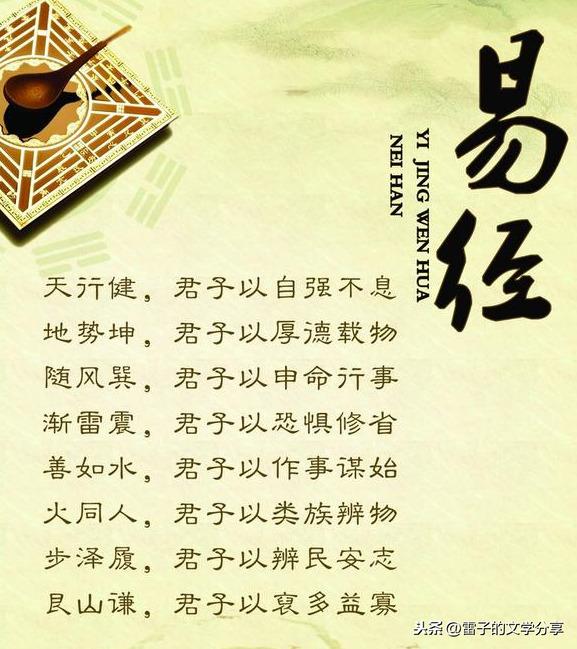 易经
YI JING WEN HUA
NEI HAN
天行健，君子以自强不息
地势坤，君子以厚德载物
随风巽，君子以申命行事
渐雷震，君子以恐惧修省
善如水，君子以作事谋始
火同人，君子以类族辨物
步泽履，君子以辨民安志
艮山谦，君子以裒多益寡
头条 @雷子的文学分享